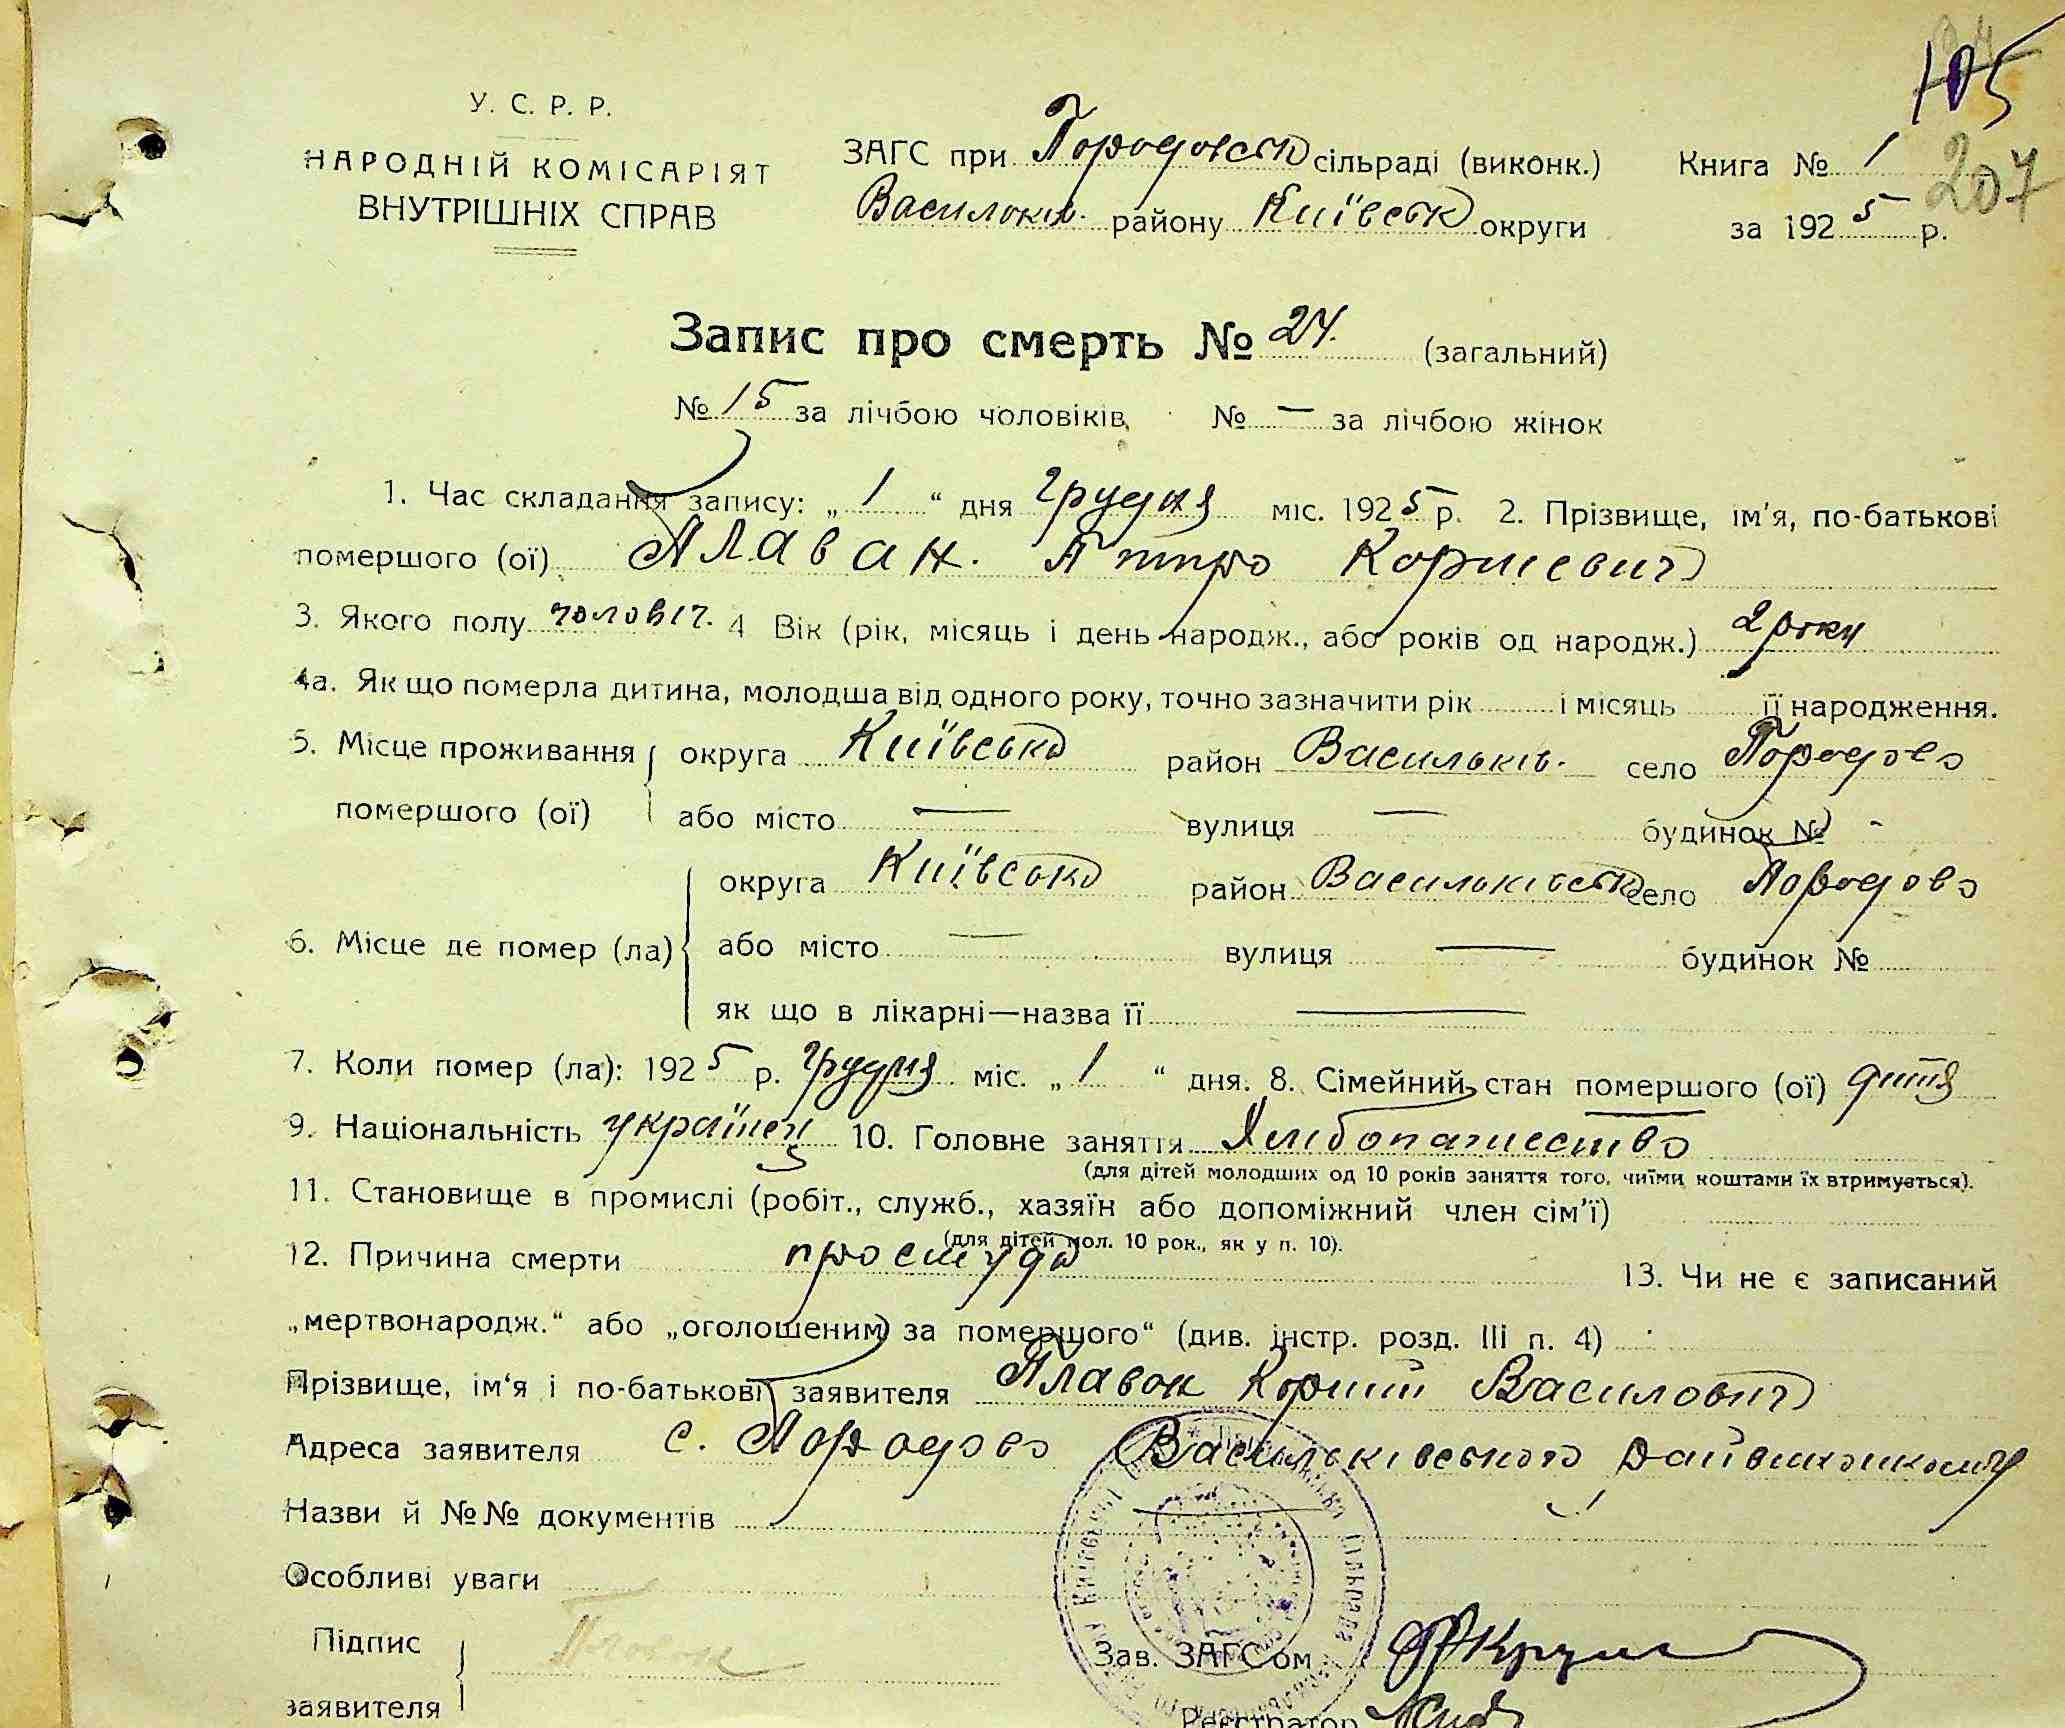 105
207
У. С. Р. Р.
НАРОДНІЙ КОМІСАРІЯТ
ВНУТРІШНІХ СПРАВ
ЗАГС при Порадовськ сільраді (виконк.) Книга № 1
Васильків. району Київськ округи за 1925 р.
Запис про смерть № 24. (загальний)
№ 15 за лічбою чоловіків, № — за лічбою жінок
1. Час складання запису: „ 1 “ дня Грудня міс. 1925 р. 2. Прізвище, ім'я, по-батькові
помершого (ої) Плаван. Петро Корнієвич
3. Якого полу чоловіч. 4 Вік (рік, місяць і день народж., або років од народж.) 2 роки
4а. Як що померла дитина, молодша від одного року, точно зазначити рік і місяць її народження.
5. Місце проживання округа Київсько район Васильків. село
помершого (ої) або місто — вулиця — будинок № -
округа Київсько район Васильківськ село
6. Місце де помер (ла) або місто — вулиця — будинок №
як що в лікарні—назва її —
7. Коли помер (ла): 1925 р. Грудня міс. „ 1 “ дня. 8. Сімейний стан помершого (ої) дитя
9. Національність українец 10. Головне заняття Хлибопашество
(для дітей молодших од 10 років заняття того, чиїми коштами їх втримується).
11. Становище в промислі (робіт., служб., хазяїн або допоміжний член сім'ї)
(для дітей мол. 10 рок., як у п. 10).
12. Причина смерти простуда 13. Чи не є записаний
„мертвонародж.“ або „оголошеним за помершого“ (див. інстр. розд. III п. 4)
Прізвище, ім'я і по-батькові заявителя Плавон Корній Василович
Адреса заявителя с. Васильківського Райвиконкому
Назви й №№ документів
Особливі уваги
Підпис
заявителя
Зав. ЗАГСом
Реєстратор